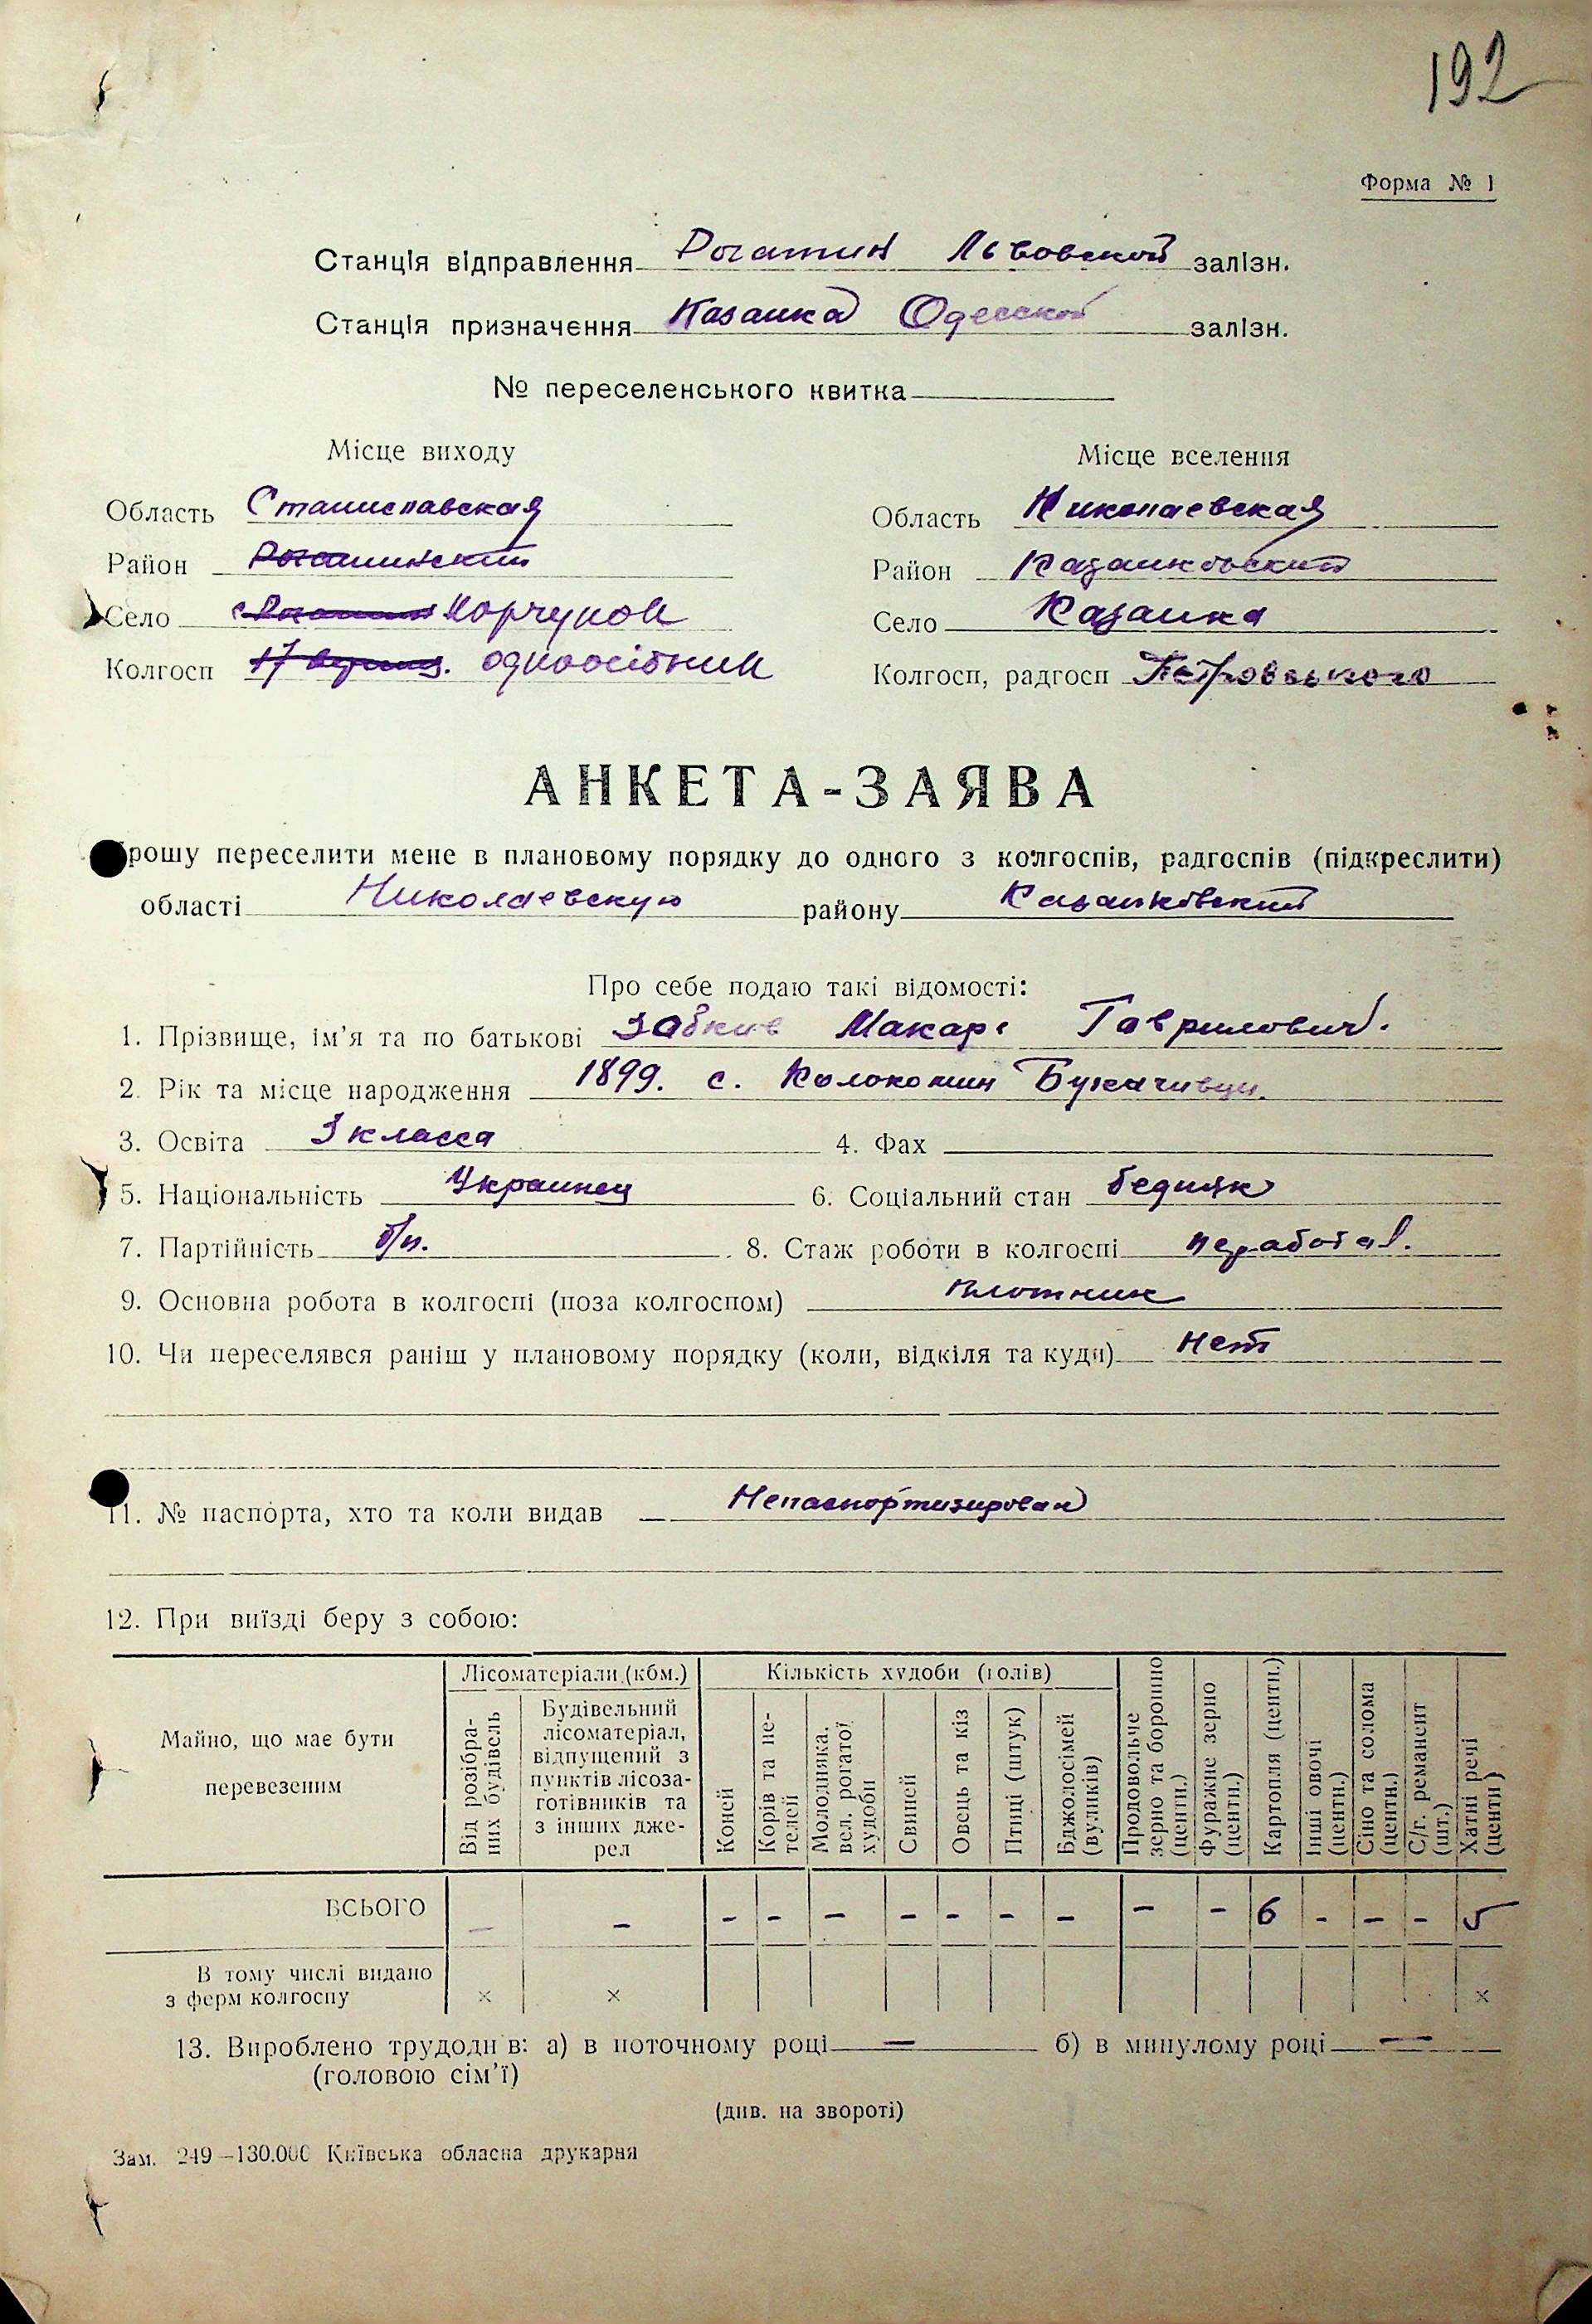 192
Форма № 1
Станція відправлення Рогатин Львовской залізн.
Станція призначення Казанка Одесской залізн.
№ переселенського квитка
Місце виходу
Місце вселення
Область Станиславская
Область Николаевская
Район Рогатинский
Район Казанковский
Село
Село Казанка
Колгосп 17 одноосібник
Колгосп, радгосп Петровського
АНКЕТА-ЗАЯВА
рошу переселити мене в плановому порядку до одного з колгоспів, радгоспів (підкреслити)
області Николаевскую району Казанковский
Про себе подаю такі відомості:
1. Прізвище, ім’я та по батькові Забкив Макар Гаврилович.
2. Рік та місце народження 1899. с. Колоколин Букачивци.
3. Освіта 3 класса 4. Фах
5. Національність Украинец 6. Соціальний стан бедняк
7. Партійність б/п. 8. Стаж роботи в колгоспі неработал.
9. Основна робота в колгоспі (поза колгоспом) плотник
10. Чи переселявся раніш у плановому порядку (коли, відкіля та куди) Нет
11. № паспорта, хто та коли видав Непаспортизирован
12. При виїзді беру з собою:
Майно, що має бути перевезеним
Лісоматеріали (кбм.)
Кількість худоби (голів)
Від розібраних будівель
Будівельний лісоматеріал, відпущений з пунктів лісозаготівників та з інших джерел
Коней
Корів та нетелей
Молодняка. вел. рогатої худоби
Свиней
Овець та кіз
Птиці (штук)
Бджолосімей (вуликів)
Продовольче зерно та борошно (центн.)
Фуражне зерно (центн.)
Картопля (центн.)
Інші овочі (центн.)
Сіно та солома (центн.)
С/г. реманент (шт.)
Хатні речі (центн)
ВСЬОГО – – – – – – – – – – – 6 – – – 5
В тому числі видано з ферм колгоспу × × ×
13. Вироблено трудоднів: а) в поточному році — б) в минулому році —
(головою сім’ї)
(див. на звороті)
Зам. 249—130.000 Київська обласна друкарня